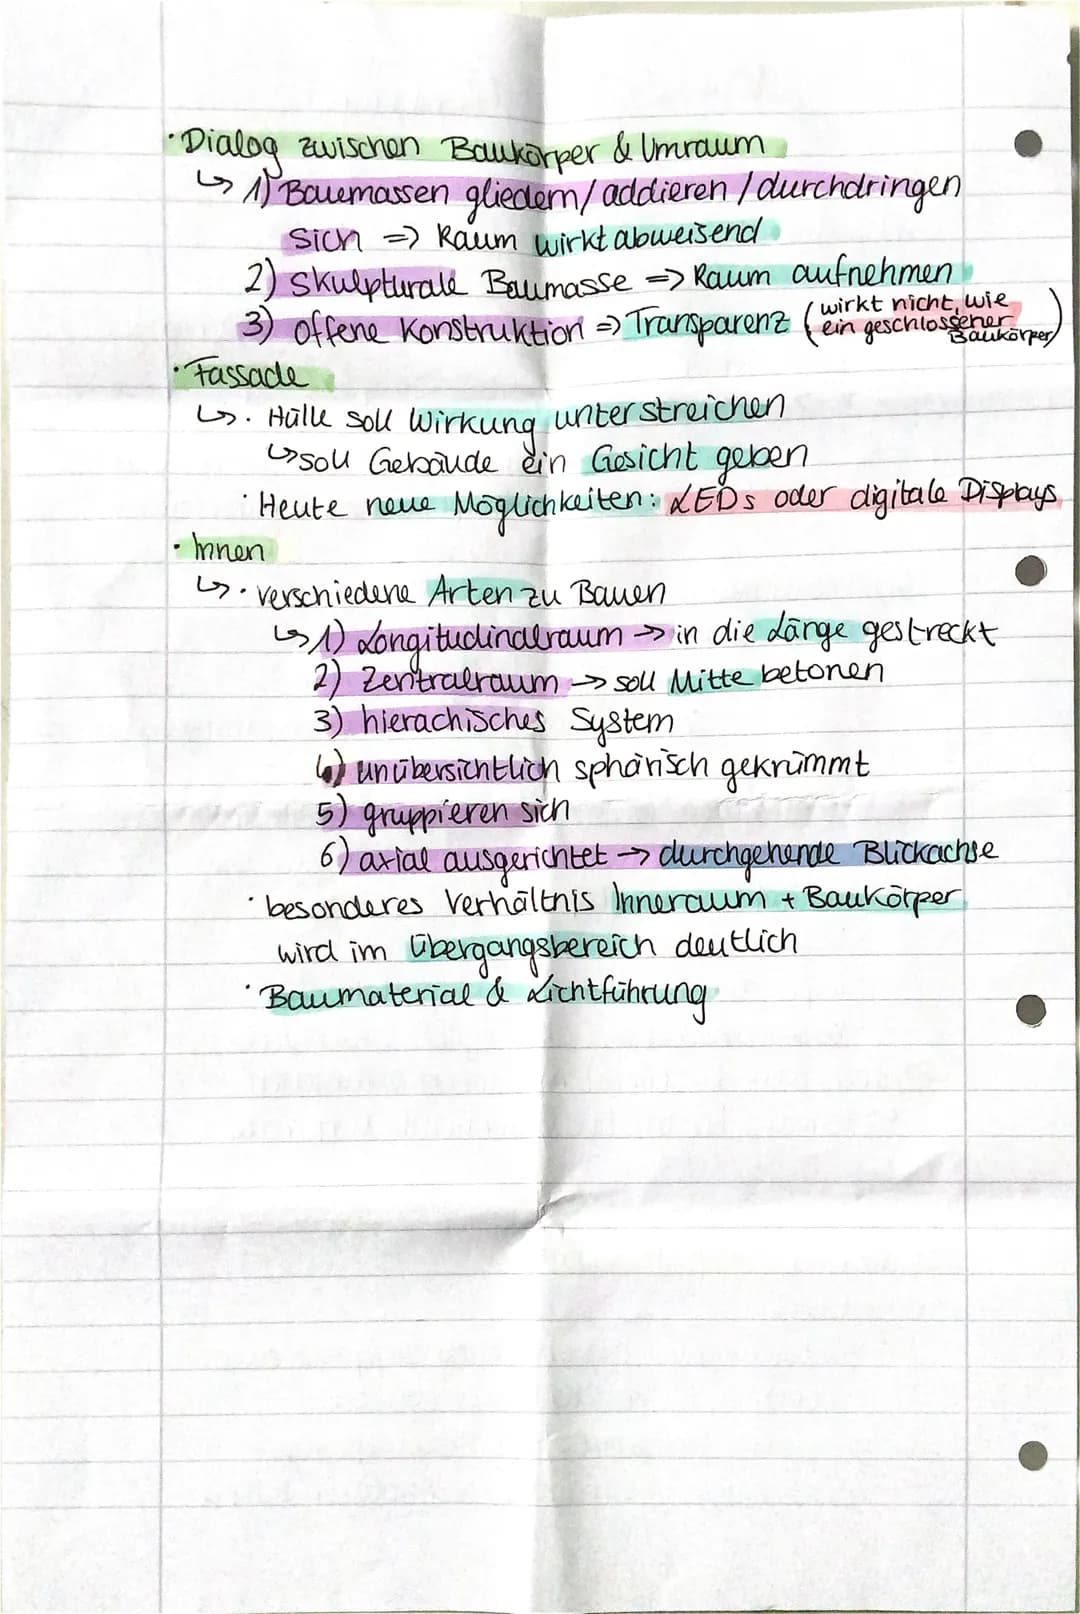 · Dialog zwischen Baukörper & Umraum
↳ 1) Baumassen gliedern/addieren/durchdringen
sich => Raum wirkt abweisend
2) Skulpturale Baumasse => Raum aufnehmen
3) offene Konstruktion => Transparenz (wirkt nicht wie
ein geschlossener
Baukörper)
· Fassade
↳ · Hülle soll Wirkung unterstreichen
↳ soll Gebäude ein Gesicht geben
· Heute neue Möglichkeiten: LEDs oder digitale Displays
· Innen
↳ · verschiedene Arten zu Bauen
↳ 1) Longitudinalraum -> in die Länge gestreckt
2) Zentralraum -> soll Mitte betonen
3) hierachisches System
4) unübersichtlich sphärisch gekrümmt
5) gruppieren sich
6) axial ausgerichtet -> durchgehende Blickachse
· besonderes Verhältnis Inneraum + Baukörper
wird im Übergangsbereich deutlich
· Baumaterial & Lichtführung